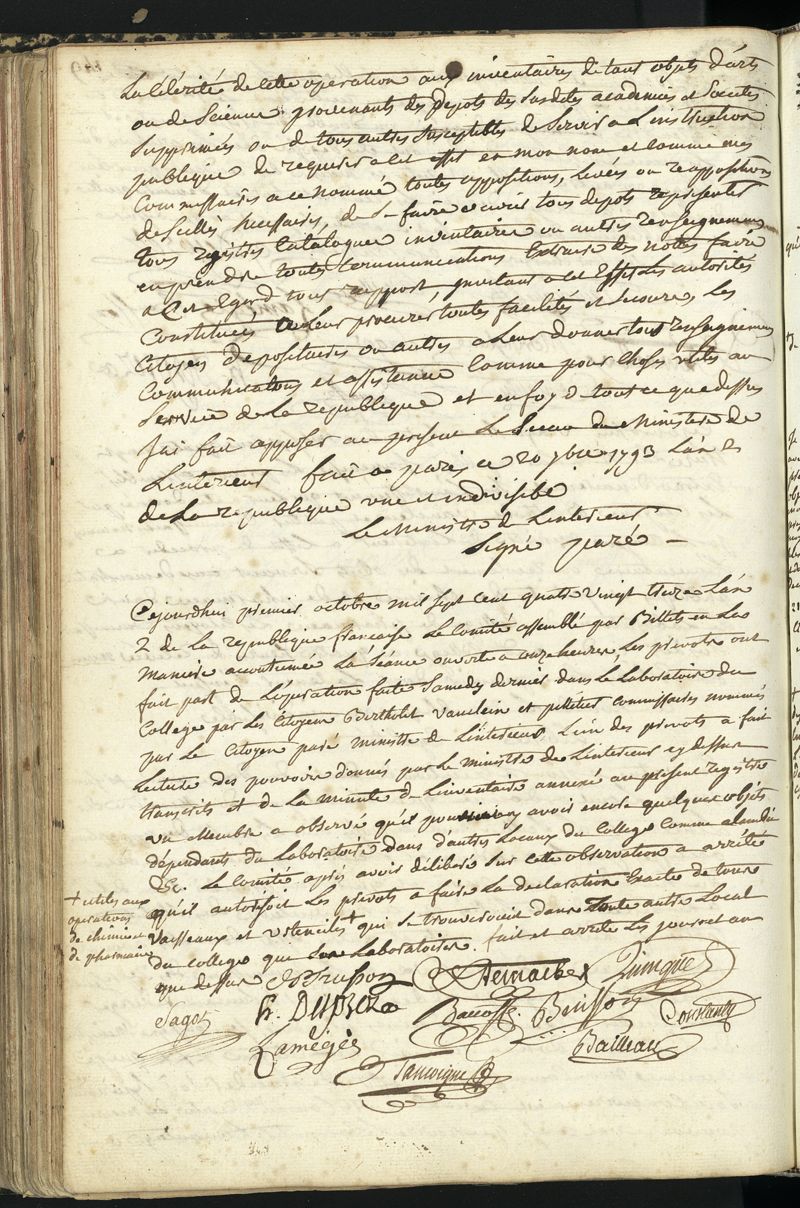 La célérité de cette operation aux inventaires de tous objets d'arts
ou de Science provenants des depots des susdites academies et Societés
Supprimés ou de tous autres susceptibles de Servir a L'instruction
publique de requerir a cet effet en mon nom et comme mes
Commissaires a ce nommé toutes appositions, Levées ou reappositions
de Scellés necessaires, de se faire ouvrir tous depots representer
tous registres Catalogues inventaires ou autres renseignemens
en prendre toutes Communications Extraire des nottes faire
a Cet Egard tous rapport invitant a cet Effet Les autorités
Constituées a Leur procurer toutes facilités et Secours, Les
Citoyens Depositaires ou autres a Leur donner tous renseignemens
Communications et assistance Comme pour choses utiles au
Service de La republique et en foy de tout ce que dessus
Jai fait apposer au present Le Sceau du Ministere de
Linterieur fait a paris ce 20 7bre 1793 Lan 2
de La republique une et indivisible
Le Ministre de Linterieur
Signé paré
Cejourdhui premier octobre mil Sept Cent quatre vingt treize Lan
2 de La republique francaise Le Comité assemblé par Billets en La
maniere accoutumée La Séance ouverte a onze heures, Les prevots ont
fait part de L'operation faite Samedy dernier dans le Laboratoire du
College par Les Citoyens Bertholet Vauclein et pelletier Commissaires nommés
par Le Citoyen paré ministre de L'interieur, L'un des prevots a fait
Lecture des pouvoirs donnés par le Ministre de Linterieur cy dessus
transcrits et de La minute de Linventaire annexé au present registre
un Membre a observé qu'il pouvoit y avoir encore quelques objets
dependants du Laboratoire dans d'autres Locaux du College Comme alambic
&c. Le Comité après avoir déliberé Sur cette observation a arrêté
qu'il autorisoit Les prevots a faire La declaration Exacte de tous
vaisseaux et ustenciles + qui se trouveroient dans toute autre Local
du College que Le Laboratoire. fait et arreté Les jour et an
que dessus
+ utiles aux
operations
de chimie et
de pharmacie
Trusson
Demachy
Quinquet
Sagot
H. Dupré
Bacoffe
Buisson
Coustandy
Lamégie
Bailleau
Tancoigne